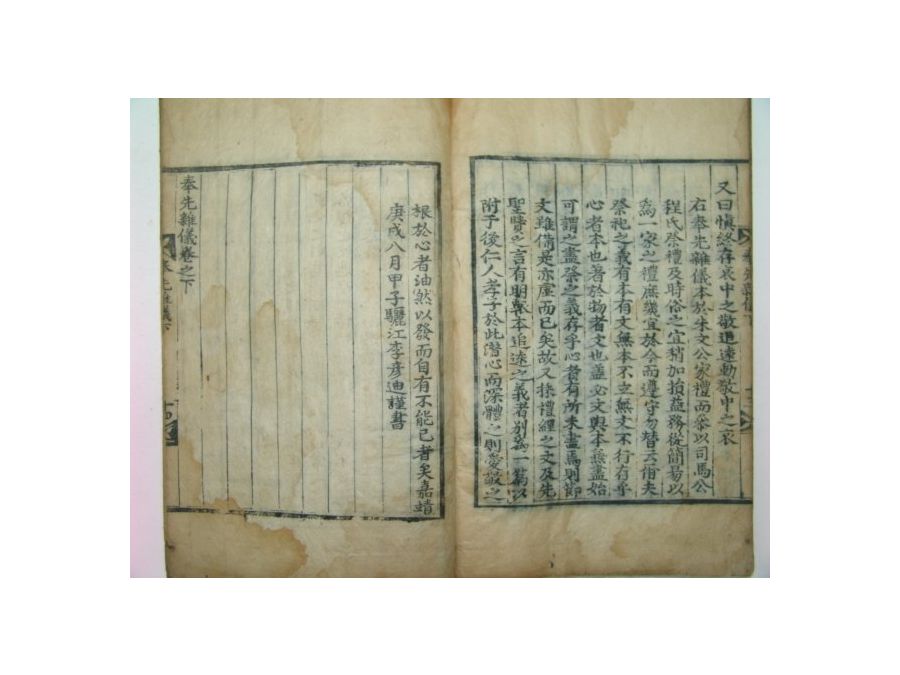 又曰愼終存哀中之敬追遠動敬中之哀
右奉先雜儀本於朱文公家禮而叅以司馬公
程氏祭禮及時俗之宜稍加損益務從簡易以
爲一家之禮庶幾宜於今而遵守勿替云爾夫
祭祀之義有本有文無本不立無文不行存乎
心者本也著於物者文也盖必文與本兼盡始
可謂之盡祭之義存乎心者有所未盡焉則節
文雖備是亦虛而已矣故又採禮經之文及先
聖賢之言有明報本追遠之義者別爲一篇以
附于後仁人孝子於此潛心而深體之則愛敬之
根於心者油然以發而自有不能已者矣嘉靖
庚戌八月甲子驪江李彦迪謹書
奉先雜儀卷之下
奉先雜儀下
十四